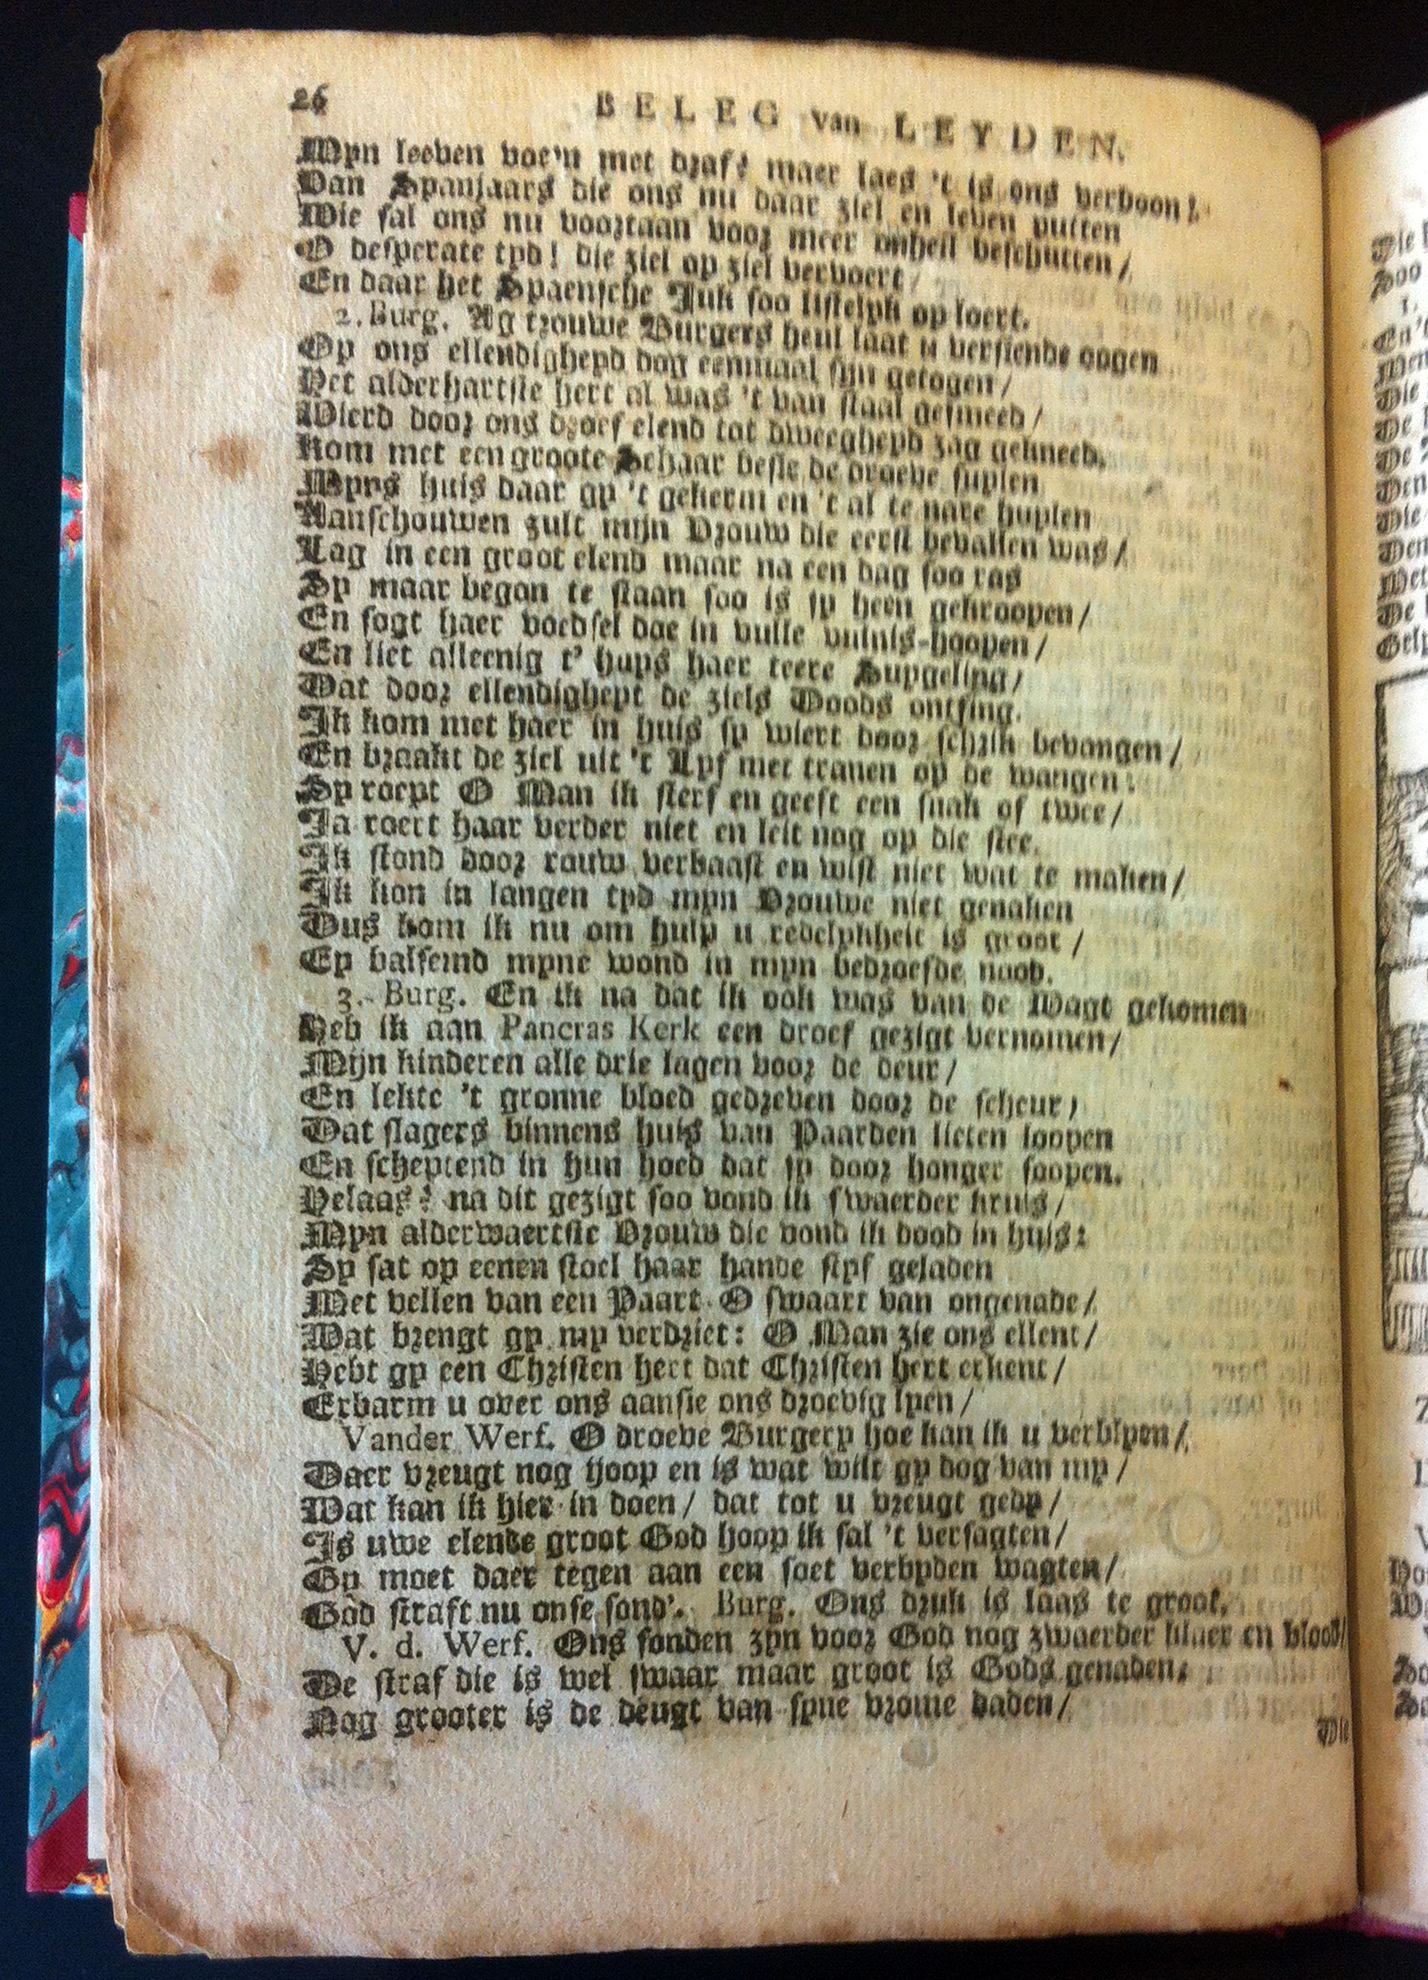 26 BELEG van LEYDEN.
Myn leeven voe'n met draf? maer laes 't is ons verboon!
Van Spanjaars die ons nu daar ziel en leven putten
Wie sal ons nu voortaan voor meer onheil beschutten/
O desperate tyd! die ziel op ziel vervoert/
En daar het Spaensche Juk soo listelyk op loert.
2. Burg. Ag trouwe Burgers heul laat u versiende oogen
Op ons ellendigheyd dog eenmaal sijn getogen/
Het alderhartste hert al was 't van staal gesmeed/
Wierd door ons droef elend tot dweegheyd zag gekneed.
Kom met een groote Schaar besie de droeve suylen
Myns huis daar gy 't gekerm en 't al te nare huylen
Aanschouwen zult mijn Vrouw die eerst bevallen was/
Lag in een groot elend maar na een dag soo ras
Sy maar begon te staan soo is sy heen gekroopen/
En sogt haer voedsel doe in vulle vulnis-hoopen/
En liet alleenig t' huys haer teere Suygeling/
Dat door ellendigheyt de ziels Doods ontfing.
Ik kom met haer in huis sy wiert door schrik bevangen/
En braakt de ziel uit 't Lyf met tranen op de wangen:
Sy roept O Man ik sterf en geeft een snak of twee/
Ja roert haar verder niet en leit nog op die stee.
Ik stond door rouw verbaast en wist niet wat te maken/
Ik kon in langen tyd myn Vrouwe niet genaken
Dus kom ik nu om hulp u redelykheit is groot/
Ey balsemd myne wond in myn bedroefde nood.
3. Burg. En ik na dat ik ook was van de Wagt gekomen
Heb ik aan Pancras Kerk een droef gezigt vernomen/
Mijn kinderen alle drie lagen voor de deur/
En lekte 't gronne bloed gedreven door de scheur/
Dat slagers binnens huis van Paarden lieten loopen
En scheptend in hun hoed dat sy door honger soopen.
Helaas! na dit gezigt soo vond ik swaerder kruis/
Myn alderwaertste Vrouw die vond ik dood in huis:
Sy sat op eenen stoel haar hande styf geladen
Met vellen van een Paart. O swaart van ongenade/
Wat brengt gy my verdriet: O Man zie ons ellent/
Hebt gy een Christen hert dat Christen hert erkent/
Erbarm u over ons aansie ons droevig lyen/
Vander Werf. O droeve Burgery hoe kan ik u verblyen/
Daer vreugt nog hoop en is wat wilt gy dog van my/
Wat kan ik hier in doen/ dat tot u vreugt gedy/
Is uwe elende groot God hoop ik sal 't versagten/
Gy moet daer tegen aan een soet verbyden wagten/
God straft nu onse sond'. Burg. Ons druk is laas te groot.
V. d. Werf. Ons sonden zyn voor God nog zwaerder blaer en blood/
De straf die is wel swaar maar groot is Gods genaden;
Nog grooter is de deugt van syne vrome daden/
Wie